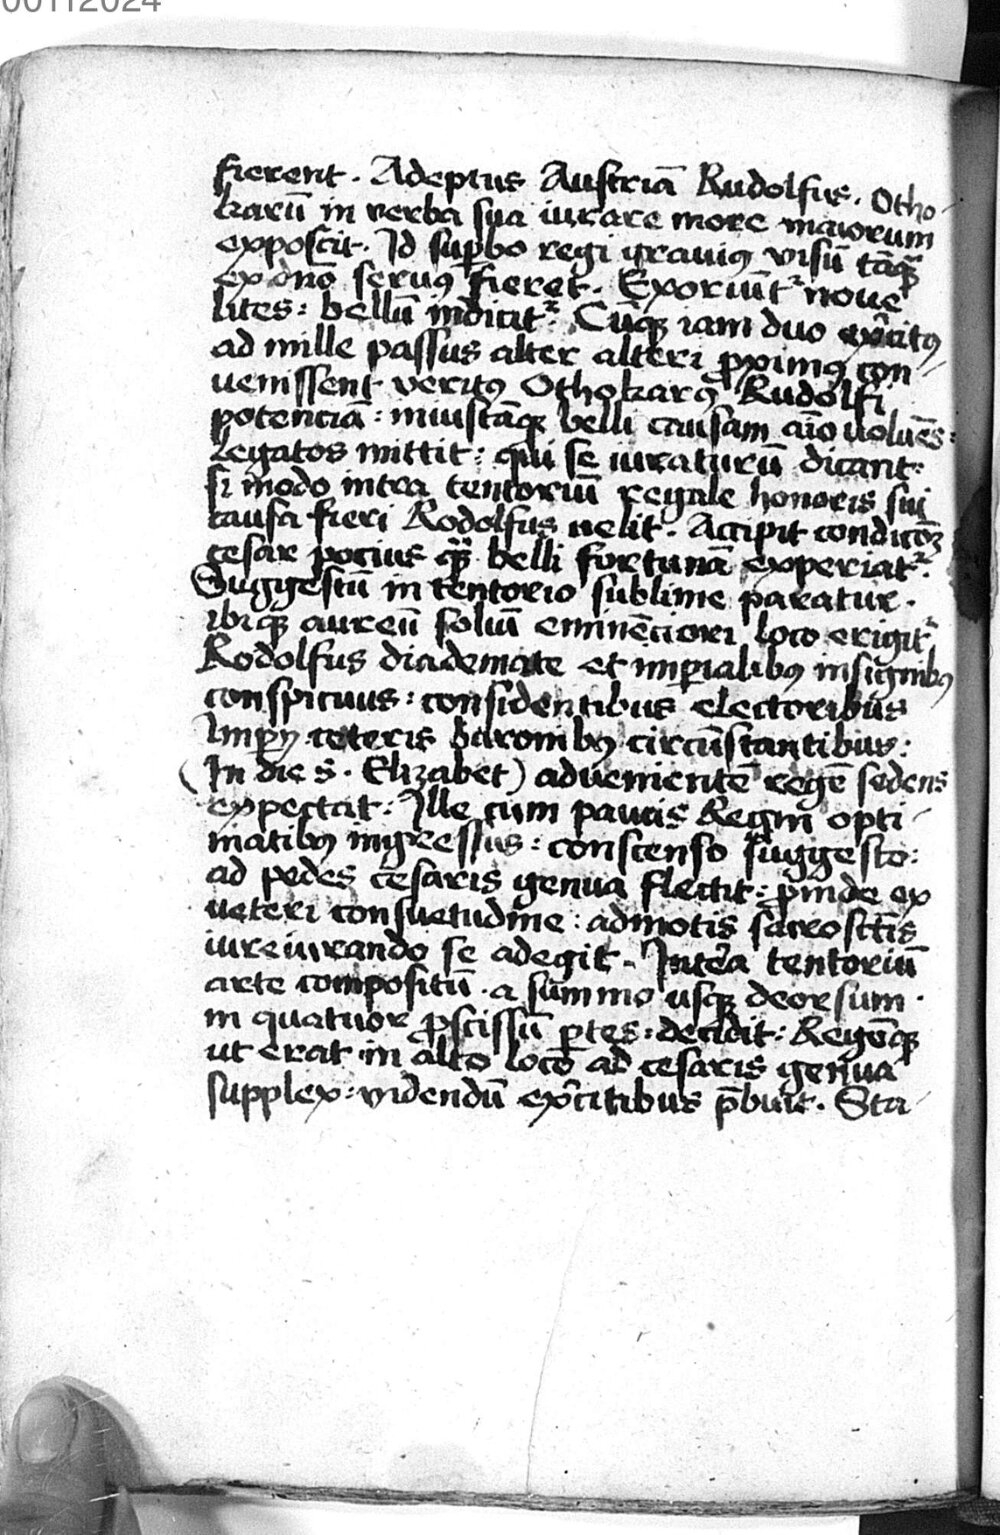 00112024
fierent. Adeptus Austriā Rudolfus. Otho-
karū in verba sua iurare more maiorum
exposcit. Id supbo regi gravius visū tāqȝ
ex dño servus fieret. Exoriūtʳ nove
lites: bellū indicitʳ. Cūqȝ iam duo exercitꝰ
ad mille passus alter alteri ꝓximꝰ con-
venissent veritꝰ Othokarꝰ Rudolfi
potenciā: iniustāqȝ belli causam aīo voluēs:
Legatos mittit: qui se iuraturū dicant:
si modo intra tentoriū regale honoris sui
causa fieri Rodolfus velit. Accipit condicōȝ
cesar pocius qȝ belli fortunā experiatʳ.
Suggestū in tentorio sublime paratur.
ibiqȝ aureū soliū eminēciori loco erigitʳ
Rodolfus diademate et impialibꝰ insignibꝰ
conspicuus: considentibus electoribus
Impij ceteris baronibꝰ circūstantibus:
(In die S. Elizabet) advenientē regē sedens
expectat: Ille cum paucis Regni opti-
matibꝰ ingressus: conscenso suggesto:
ad pedes cesaris genua flectit: ꝓinde ex
veteri consuetudine: admotis sacrosctīs
iureiurando se adegit. Interea tentoriū
arte compositū. a summo usqȝ deorsum.
in quatuor ꝓscissū ꝑtes: decidit: Regēqȝ
ut erat in alto loco ad cesaris genua
supplex: videndū exercitibus p̄buit. Sta-